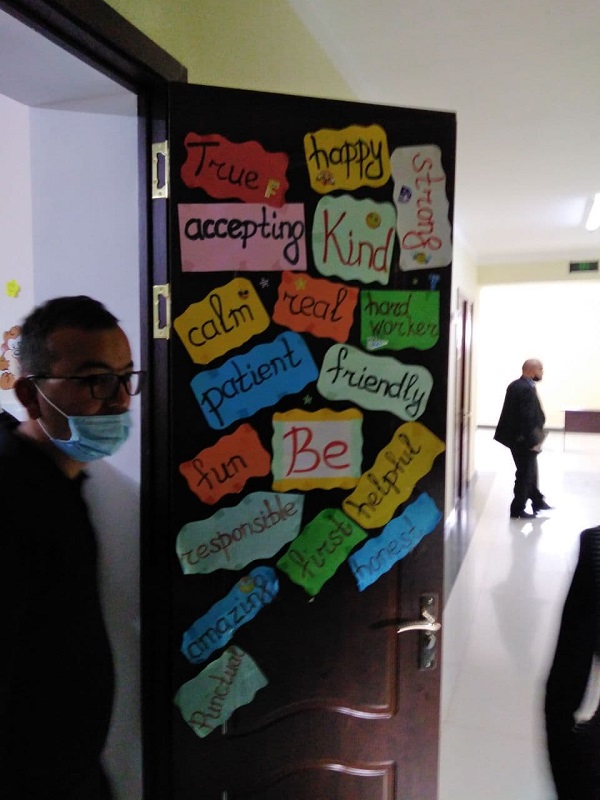 True
happy
strong
accepting
Kind
calm
real
hard
worker
patient
friendly
fun
Be
helpful
responsible
first
honest
amazing
Punctual